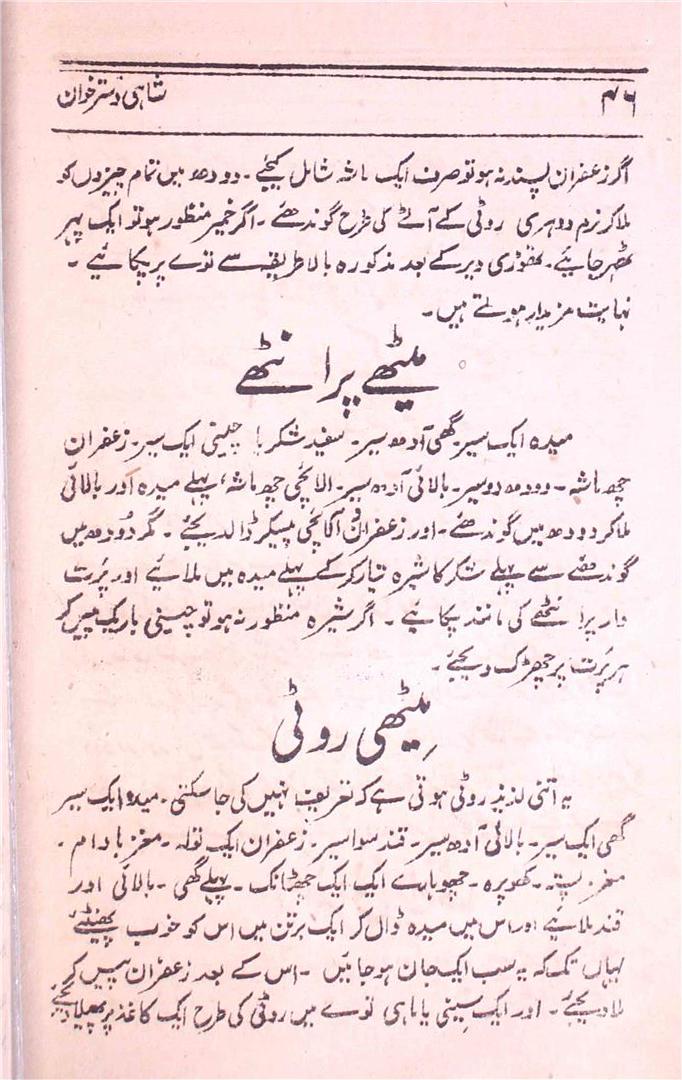 ۴۶
شاہی دسترخوان
اگر زعفران پسند نہ ہو تو صرف ایک ماشہ شامل کیجئے ۔ دودھ میں تمام چیزوں کو
ملا کر نرم دوہری روٹی کے آٹے کی طرح گوندھئے ۔ اگر خمیر منظور ہو تو ایک پہر
ٹھہر جائیے ۔ تھوڑی دیر کے بعد مذکورہ بالا طریقہ سے توے پر پکائیے ۔
نہایت مزیدار ہوتے ہیں ۔
میٹھے پرانٹھے
میدہ ایک سیر ۔ گھی آدھ سیر ۔ سفید شکر یا چینی ایک سیر ۔ زعفران
چھ ماشہ ۔ دودھ دو سیر ۔ بالائی آدھ سیر ۔ الائچی چھ ماشہ ، پہلے میدہ اور بالائی
ملا کر دودھ میں گوندھئے ۔ اور زعفران و الائچی پیسکر ڈالدیجئے ۔ مگر دُودھ میں
گوندھنے سے پہلے شکر کا شیرہ تیار کر کے پہلے میدہ میں ملائیے اور پَرت
دار پرانٹھے کی مانند پکائیے ۔ اگر شیرہ منظور نہ ہو تو چینی باریک پیس کر
ہر پَرت پر چھڑک دیجئے ۔
میٹھی روٹی
یہ اتنی لذیذ روٹی ہوتی ہے کہ تعریف نہیں کی جا سکتی ۔ میدہ ایک سیر
گھی ایک سیر ۔ بالائی آدھ سیر ۔ قند سوا سیر ۔ زعفران ایک تولہ ۔ مغز بادام ۔
مغز پستہ ۔ کھوپرہ ۔ چھوہارے ایک ایک چھٹانک ۔ پہلے گھی ۔ بالائی اور
قند ملائیے اور اس میں میدہ ڈال کر ایک برتن میں اس کو خوب پھینٹئے
یہاں تک کہ یہ سب ایک جان ہو جائیں ۔ اس کے بعد زعفران پیس کر
ملا دیجئے ۔ اور ایک سینی یا ماہی توے میں روٹی کی طرح ایک کاغذ پر پھیلا دیجئے